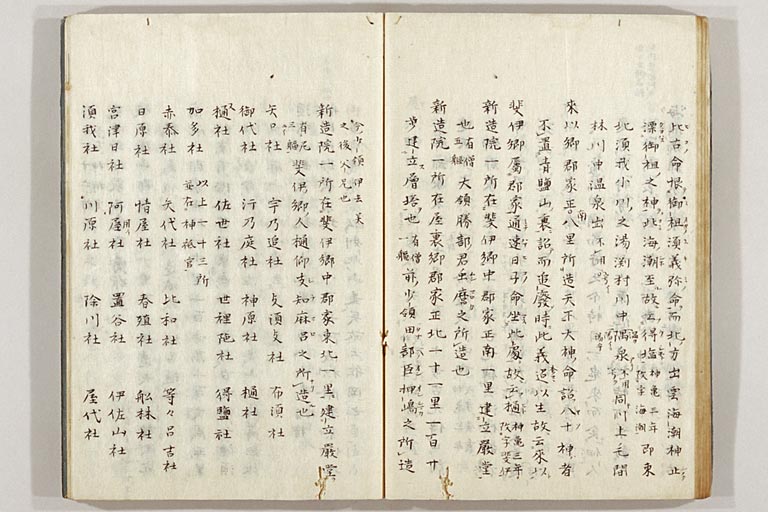 海比古命恨御祖須義弥命而北方出雲海潮神止
漂御祖之神北海潮至故云得塩神亀三年改字海潮即東
北須我小川之湯渕村川中温泉不用同川上毛間
林川中温泉出不用
来以郷郡家正南八里所造天下大神命詔八十神者
不置青垣山裏詔而追廢時此義迢以生故云来以
斐伊郷属郡家通速日子命坐此處故云樋神亀三年改字斐伊
新造院一所在斐伊郷中郡家正南一里建立嚴堂
也有僧五軀大領勝部君虫麿之所造也
新造院一所在屋裏郷郡家正北一十一里一百廿
歩建立層塔也有僧一軀前少領田部臣押嶋之所造
今少領伊去美之後父兄也
新造院一所在斐伊郷中郡家東北一里建立嚴堂
有尼二軀斐伊郷人樋仰支知麻呂之所造也
矢口社 宇乃追社 支須支社 布須社
御代社 汙乃庭社 神原社 樋社
樋社 佐世社 世裡陁社 得塩社
加多社 以上一十三所並在神祇官
赤秦社 矢代社 比和社 等々呂吉社
日原社 情屋社 春殖社 舩林社
宮津日社 阿用社 置谷社 伊佐山社
須我社 川原社 除川社 屋代社